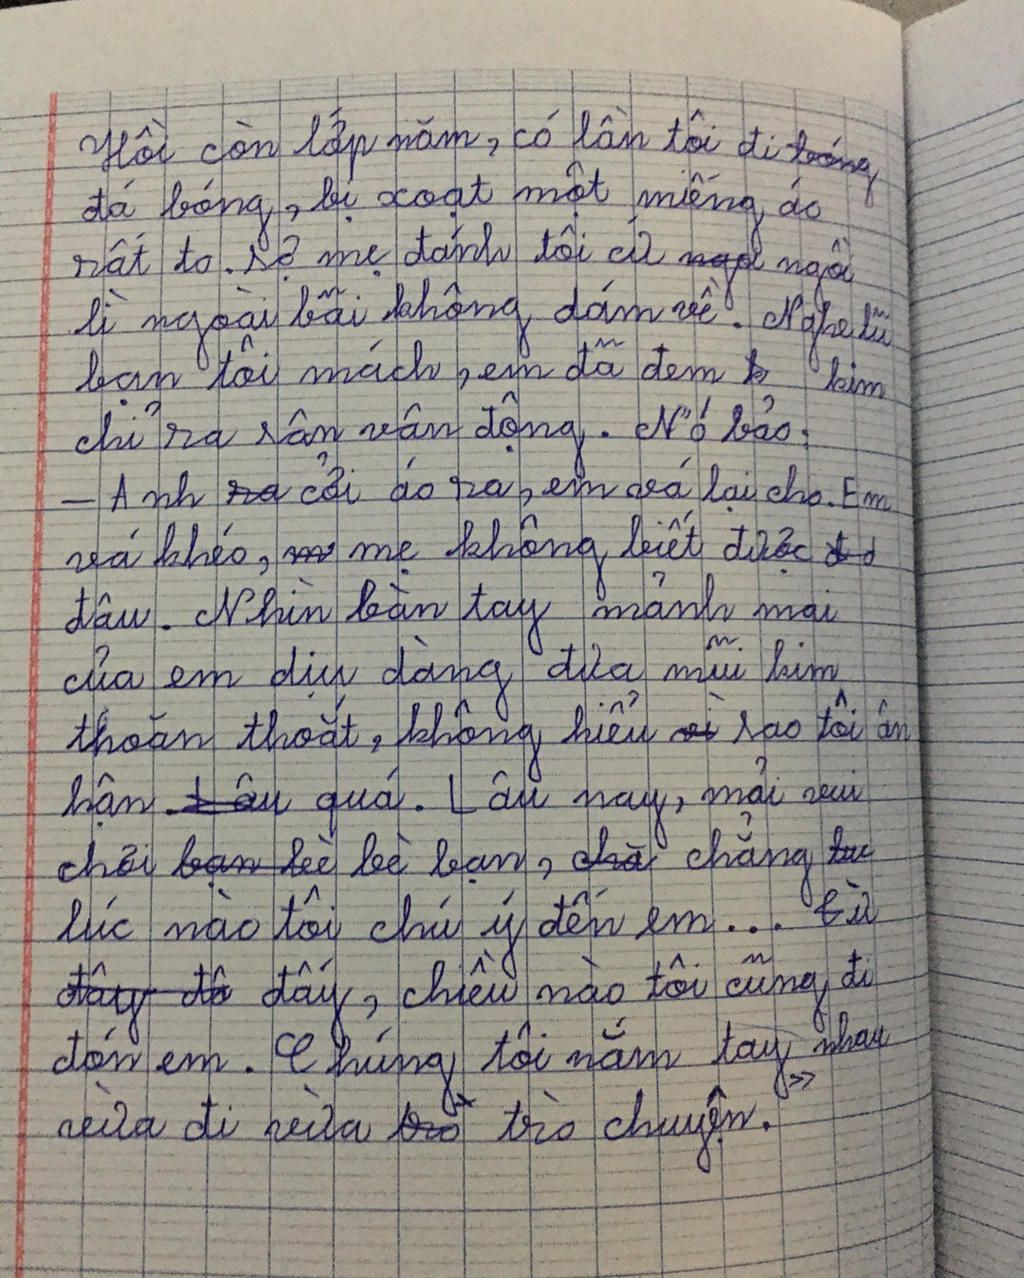 Hồi còn lớp năm, có lần tôi đi
đá bóng, bị xoạt một miếng áo
rất to. Sợ mẹ đánh tôi cứ ngồi
lì ngoài bãi không dám về. Nghe lũ
bạn tôi mách, em đã đem kim
chỉ ra sân vân động. Nó bảo:
- Anh cởi áo ra, em vá lại cho. Em
vá khéo, mẹ không biết được
đâu. Nhìn bàn tay mảnh mai
của em dịu dàng đưa mũi kim
thoăn thoắt, không hiểu sao tôi ân
hận quá. Lâu nay, mải vui
chơi bè bạn, chẳng
lúc nào tôi chú ý đến em... Từ
đấy, chiều nào tôi cũng đi
đón em. Chúng tôi nắm tay nhau
vừa đi vừa trò chuyện.